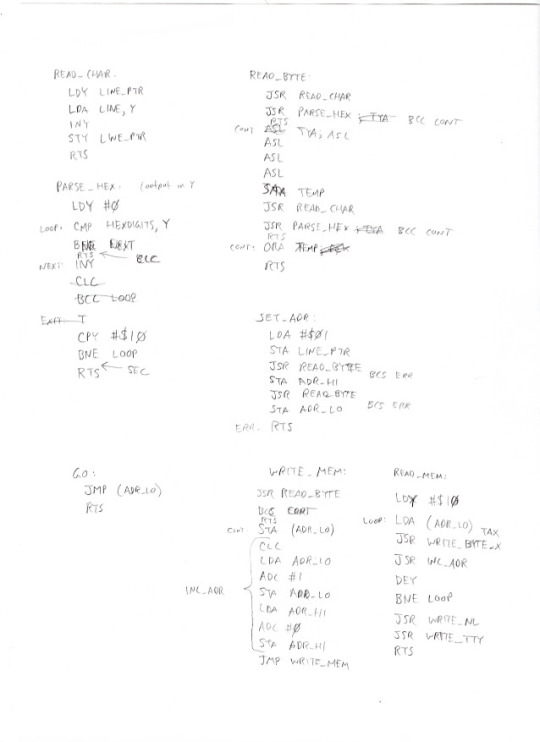 READ_CHAR:
LDY LINE_PTR
LDA LINE,Y
INY
STY LINE_PTR
RTS
PARSE_HEX: (output in Y
LDY #0
LOOP: CMP HEXDIGITS,Y
BNE NEXT
RTS ← CLC
NEXT: INY
CLC
BCC LOOP
CPY #$10
BNE LOOP
RTS ← SEC
READ_BYTE:
JSR READ_CHAR
JSR PARSE_HEX TYA BCC CONT
RTS
CONT: ASL TYA, ASL
ASL
ASL
ASL
STA TEMP
JSR READ_CHAR
JSR PARSE_HEX TYA BCC CONT
RTS
CONT: ORA TEMP
RTS
SET_ADR:
LDA #$01
STA LINE_PTR
JSR READ_BYTE
BCS ERR
STA ADR_HI
JSR READ_BYTE
BCS ERR
STA ADR_LO
ERR: RTS
GO:
JMP (ADR_LO)
RTS
WRITE_MEM:
JSR READ_BYTE
BCC CONT
RTS
CONT: STA (ADR_LO)
INC_ADR
CLC
LDA ADR_LO
ADC #1
STA ADR_LO
LDA ADR_HI
ADC #0
STA ADR_HI
JMP WRITE_MEM
READ_MEM:
LDY #$10
LOOP: LDA (ADR_LO) TAX
JSR WRITE_BYTE_X
JSR INC_ADR
DEY
BNE LOOP
JSR WRITE_NL
JSR WRITE_TTY
RTS